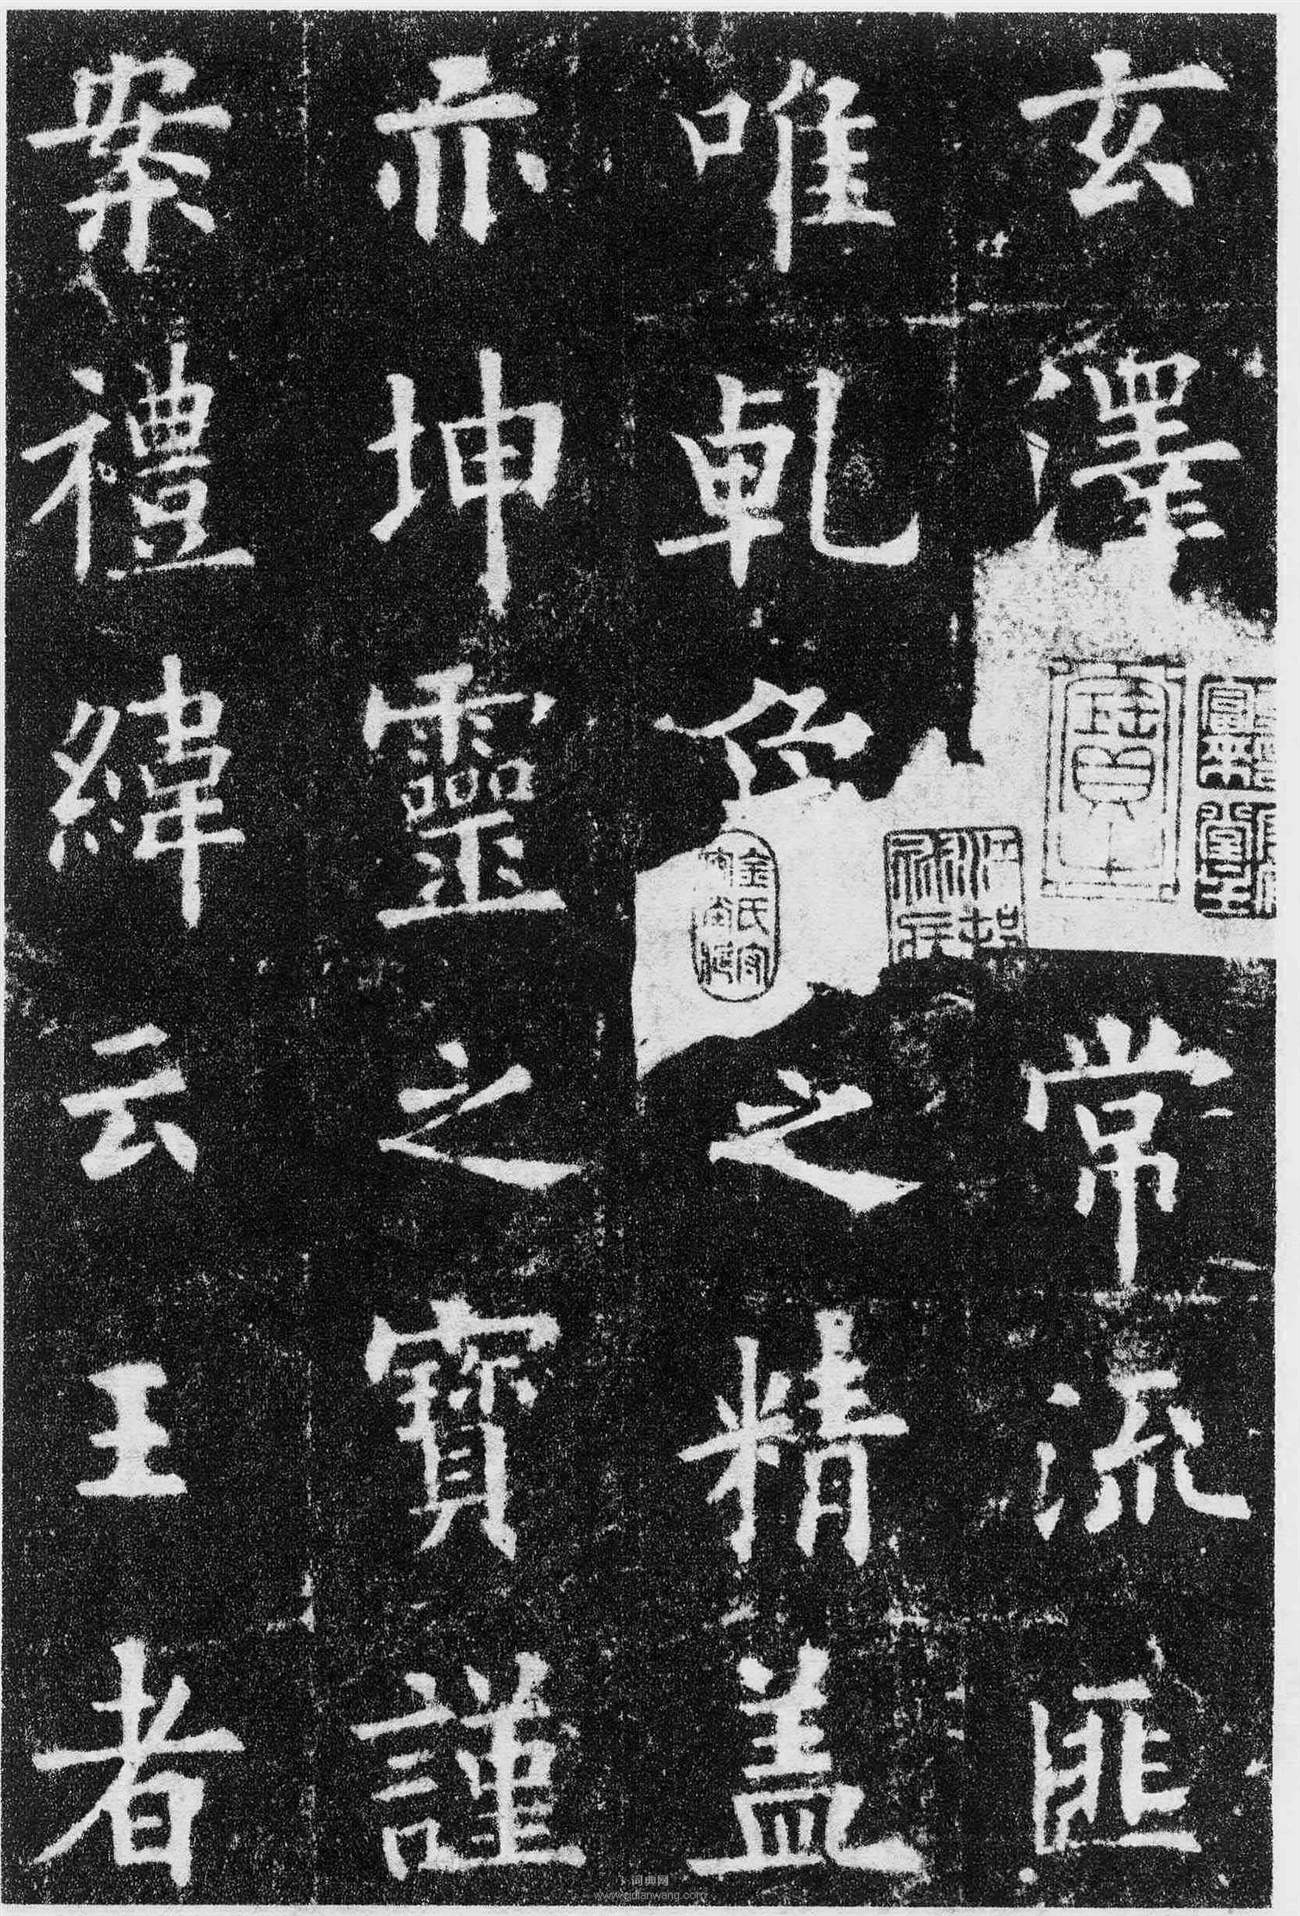 玄澤常流匪
唯乹象之精盖
亦坤靈之寶謹
案禮緯云王者
金氏
寶
詞典网
www.cidianwang.com